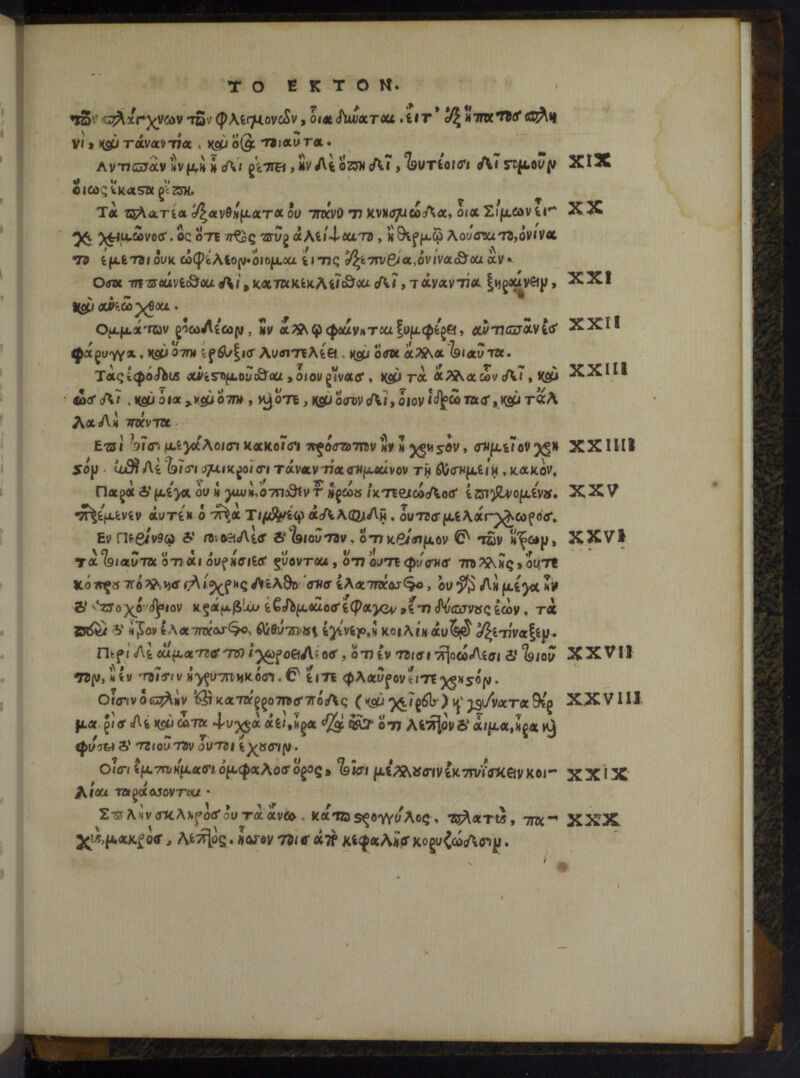 ΤΟ ΕΚΤΟΝ.
τῶν σπλάγχνων τῶν φλεγμονῶν, οἷα δύναται. εἴτ' ἐξ ἥπατος σπλη
νὶ, καὶ τἀναντία, καὶ ὅσα τοιαῦτα.
Αντισπᾶν ἢν μὴ ᾗ δεῖ ῥέπει, ἢν δὲ ὅπη δεῖ, τουτέοισι δεῖ στομοῦν XIX
οἵως ἕκαστα ῥέπη.
Τὰ πλατέα ἐξανθήματα οὐ πάνυ τι κνησμώδεα, οἷα Σίμων εἶ- XX
χε χειμῶνος. ὃς ὅτε πρὸς πῦρ ἀλείψαιτο, ἢ θερμῷ λούσαιτο, ὀνίνα
το ἔμετοι οὐκ ὠφέλεον. οἴομαι εἴ τις ἐξεπυρία, ὀνίνασθαι ἄν.
Οσα πεπαίνεσθαι δεῖ, κατακεκλεῖσθαι δεῖ, τἀναντία ξηραίνειν, XXI
καὶ ἀνεῶχθαι.
Ομμάτων ῥοωδέων, ἢν ἄλλῳ φαίνηται ξυμφέρει, ἀντισπᾶν ἐς XXII
φάρυγγα, καὶ ὅπη ἔρευξις λυσιτελέει. καὶ ὅσα ἄλλα τοιαῦτα.
Τὰς ἐφόδους ἀνεστομοῦσθαι, οἷον ῥῖνας, καὶ τὰ ἄλλα ὧν δεῖ, καὶ XXIII
ὡς δεῖ. καὶ οἷα, καὶ ὅπη, καὶ ὅτε, καὶ ὅσον δεῖ, οἷον ἱδρῶτας, καὶ τἄλ
λα δὴ πάντα.
Επὶ τοῖσι μεγάλοισι κακοῖσι πρόσωπον ἢν ᾖ χρηστὸν, σημεῖον χρη XXIIII
στόν. ἐπὶ δὲ τοῖσι σμικροῖσι τἀναντία σημαῖνον τῇ εὐσημείῃ, κακόν.
Παρὰ τὸ μέγα οὗ ἡ γυνὴ, ὄπισθεν τοῦ ἡρώου ἰκτεριώδεος ἐπιγενομένου. XXV
παρέμενεν αὐτέῃ ὁ παρὰ ἀδελφιδῆ. οὗτος μελάγχλωρός.
Εν Περίνθῳ τὸ τοῦ τὸ τοιοῦτον, ὅτι κρίσιμον καὶ τῶν ἤρων, XXVI
τὰ τοιαῦτα ὅτι αἱ οὐρήσιες ῥύονται, ὅτι οὔτε φύσης πολλῆς, οὔτε
κόπρου πολλῆς γλίσχρης διέλθουσης ἐλαπάσσετο, οὐ γὰρ δὴ μέγα ἦν
τὸ ὑποχόνδριον κράμβην ἑβδομαῖος ἔφαγεν, ἔτι δύσπνους ἐὼν, τὰ
περὶ τὸ ἦτρον ἐλαπάσσετο, εὔπνους ἐγένετο, ἡ κοιλίη αὐτῷ ἐξετίναξεν.
Περὶ δὲ αἵματος τοῦ ἰχωροειδέος, ὅτι ἐν τοῖσι πτοώδεσι τὸ τοιοῦ XXVII
τον, ἢ ἐν τοῖσιν ἡγρυπνηκόσι. καὶ εἴτε φλαῦρον εἴτε χρηστόν.
Οἷσιν ὁ σπλὴν ἐστὶ κατάρροπος πόδες (καὶ χεῖρες) καὶ γούνατα θερ XXVIII
μα. ῥὶς δὲ καὶ ὦτα ψυχρὰ ἀεὶ, ἦρα διὰ τοῦτο ὅτι λεπτὸν τὸ αἷμα, ἦρα καὶ
φύσει τὸ τοιοῦτον οὗτοι ἔχουσιν.
Οἷσι ἐμπυήμασι ὀμφαλὸς ὄρρος, τοῖσι μέλλουσιν ἐκπυΐσκειν κοι- XXIX
λίαι ταράσσονται.
Σπλὴν σκληρὸς οὐ τὰ ἄνω. κάτω στρογγύλος, πλατὺς, πα- XXX
χὺς, μακρὸς, λεπτός. ἧσσον τοῖς ἀπὸ κεφαλῆς κορυζώδεσιν.